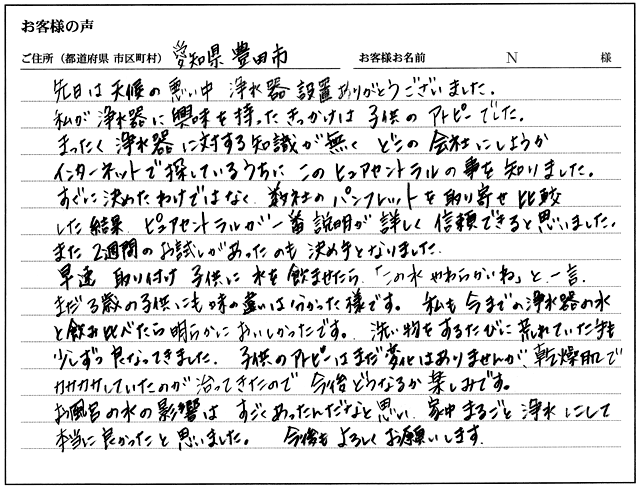 お客様の声
ご住所（都道府県 市区町村） 愛知県 豊田市 お客様お名前 N 様
先日は天候の悪い中 浄水器 設置ありがとうございました。
私が浄水器に興味を持ったきっかけは 子供の アトピーでした。
まったく 浄水器に対する知識が無く どこの会社にしようか
インターネットで探しているうちに このピュアセントラルの事を知りました。
すぐに決めたわけではなく 数社のパンフレットを取り寄せ 比較
した結果 ピュアセントラルが一番説明が詳しく 信頼できると思いました。
また2週間のお試しがあったのも 決め手となりました。
早速 取り付け 子供に 水を飲ませたら、「この水 やわらかいね」と一言。
まだ3歳の子供にも味の違いは分かった様です。 私も今までの浄水器の水
と飲み比べたら明らかにおいしかったです。 洗い物をするたびに荒れていた手も
少しずつ良なってきました。 子供のアトピーはまだ変化はありませんが、乾燥肌で
カサカサしていたのが治ってきたので 今後どうなるか楽しみです。
お風呂の水の影響は すごくあったんだなと思い 家中まるごと浄水にして
本当に良かったと思いました。 今後も よろしくお願いします。